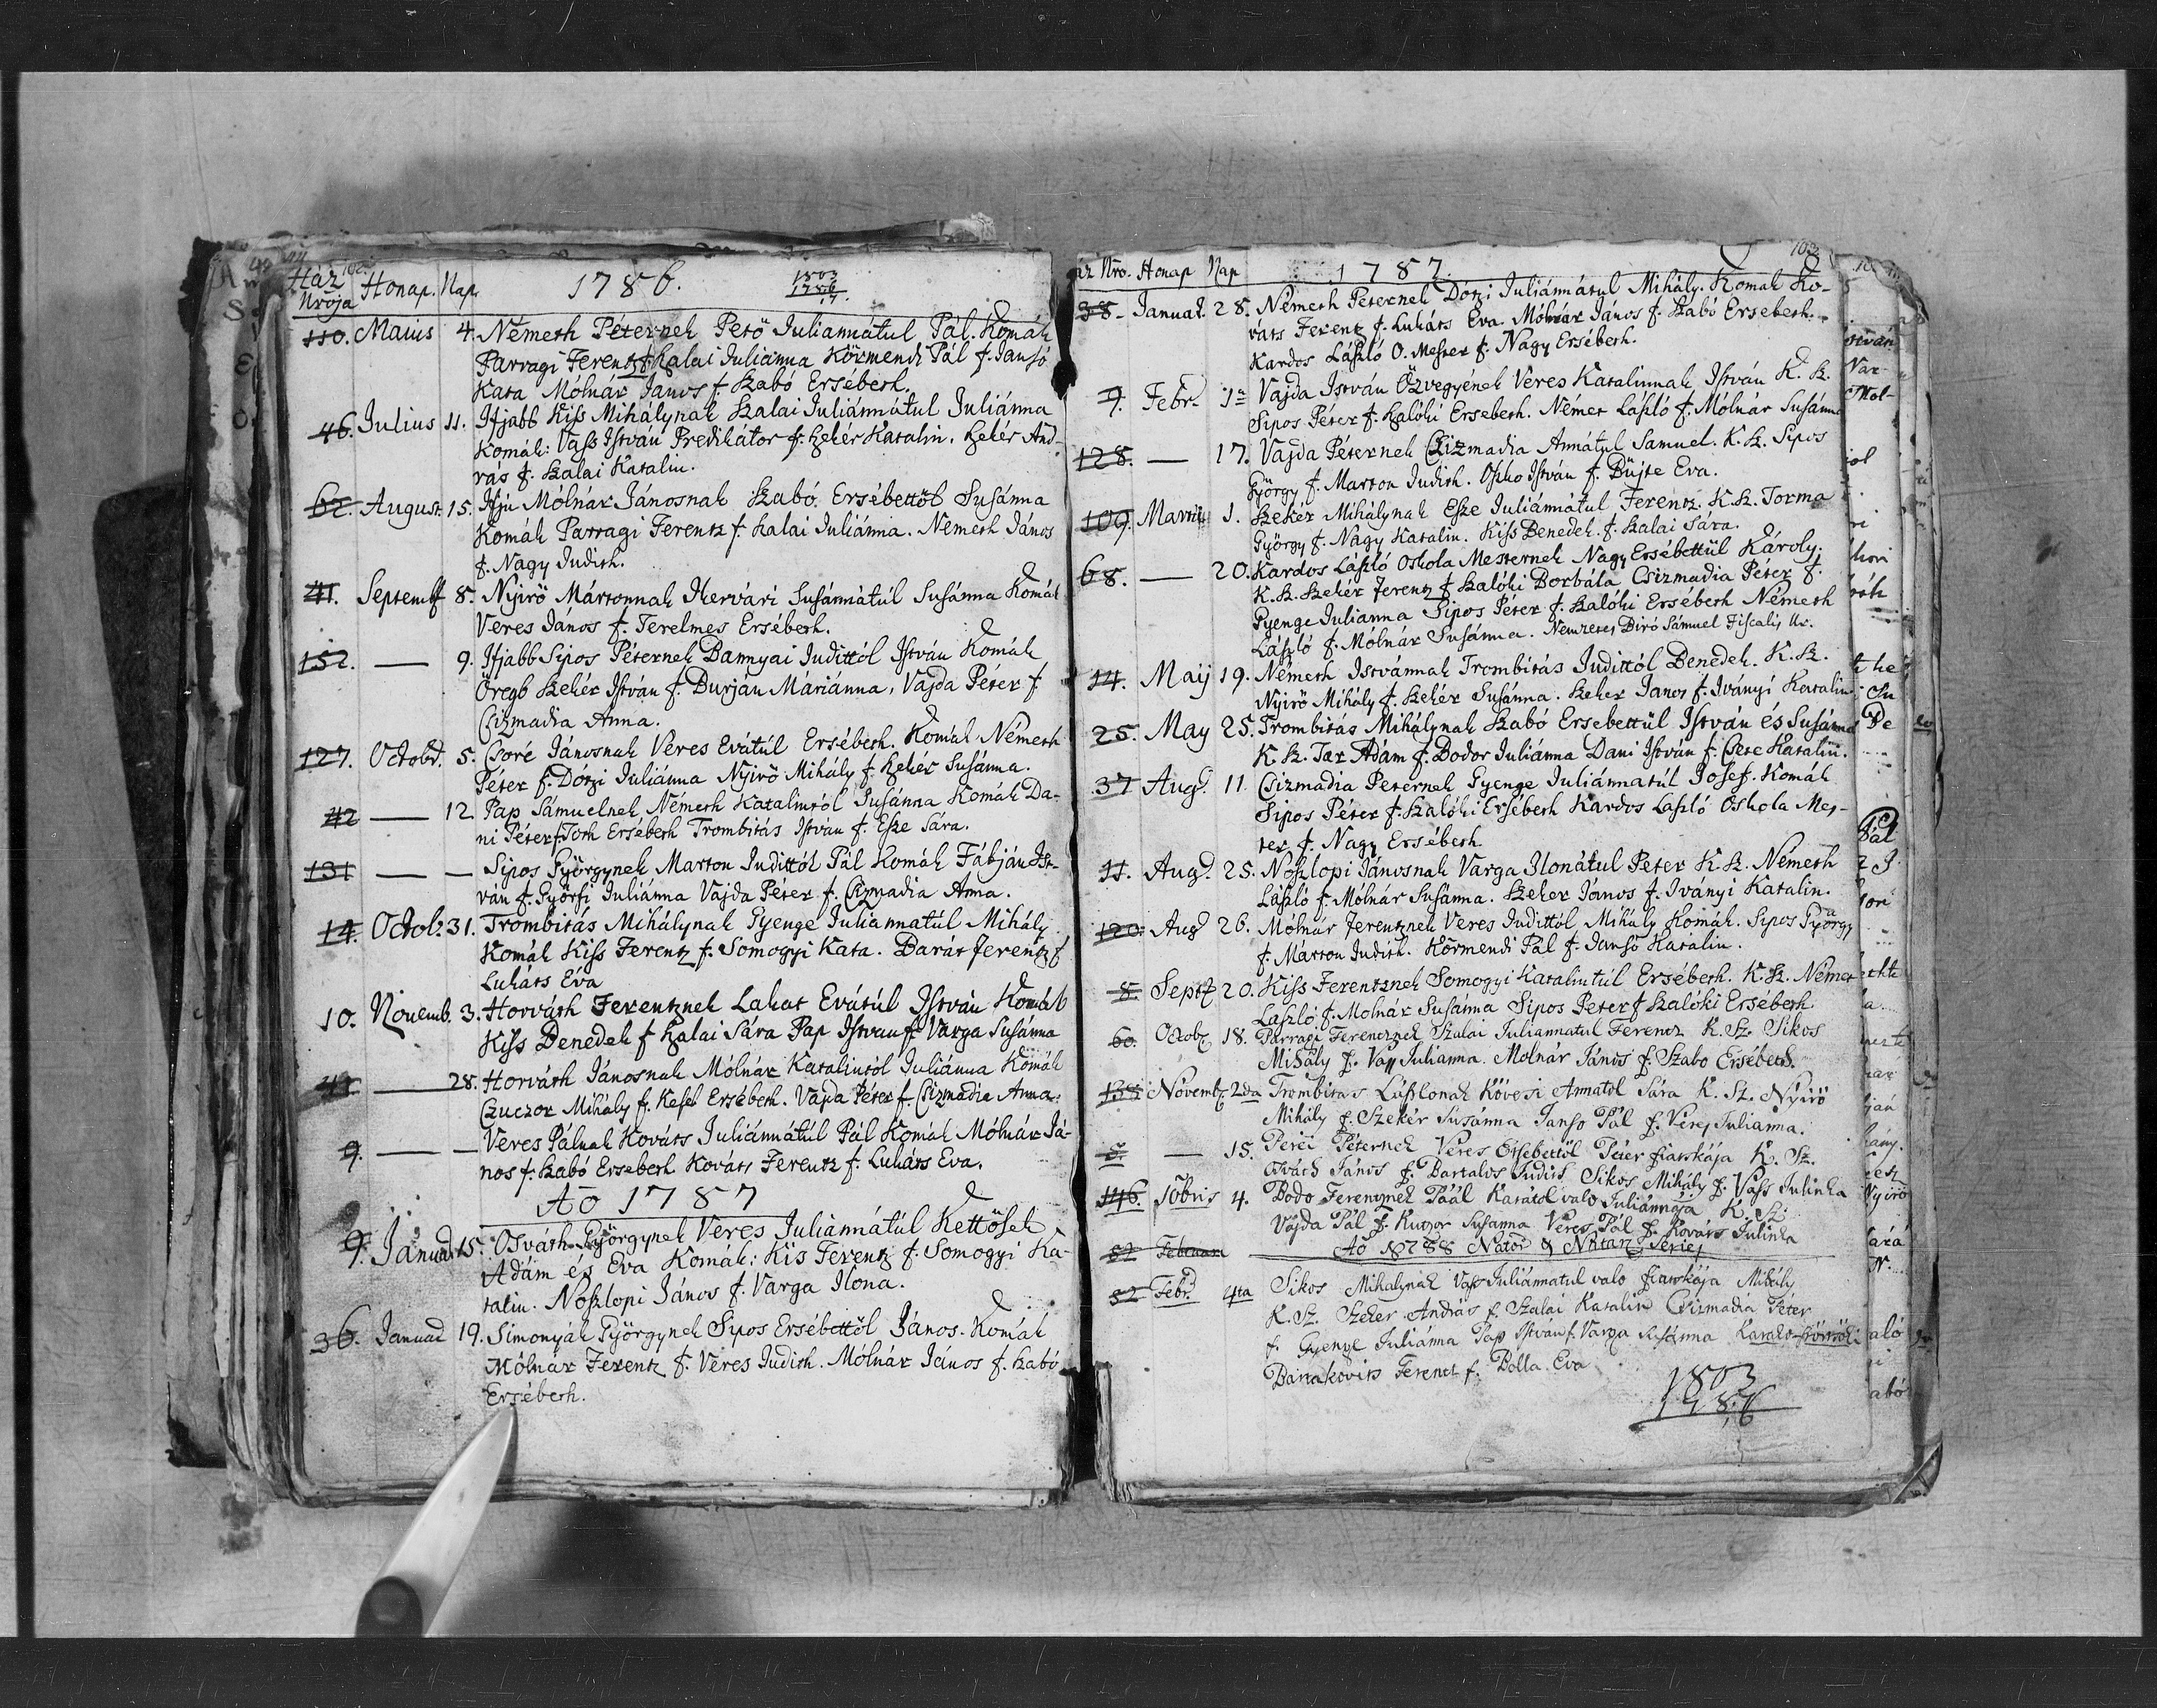 102.
Ház Nroja Honap. Nap. 1786. 1803 1786 17.
110. Maius 4. Németh Péternek Pető Juliannátul Pál. Komák
Parragi Ferentz f. Szalai Juliánna Körmendi Pál f. Jansó
Kata Mólnár János f. Szabó Ersébeth.
46. Julius 11. Ifjabb Kiss Mihálynak Szalai Juliánnátul Juliánna
Komák: Vass István Predikátor f. Szekér Katalin. Szekér And-
rás f. Szalai Katalin.
62. August. 15. Ifju Mólnár Jánosnak Szabó Ersébettől Susánna
Komák Parragi Ferentz f. Szalai Juliánna. Németh János
f. Nagy Judith.
41. Septemb. 8. Nyirő Mártonnak Hervári Susánnátúl Susánna Komák
Veres János f. Terelmes Ersébeth.
152. — 9. Ifjabb Sipos Péternek Bannyai Judittól István Komák
Öregb Szekér István f. Burján Máriánna, Vajda Péter f.
Csizmadia Anna.
127. Octobr. 5. Csoré Jánosnak Veres Evátúl Ersébeth. Komák Németh
Péter f. Dótzi Juliánna Nyirő Mihály f. Szeker Susánna.
42 — 12 Pap Sámuelnek Németh Katalintól Susánna Komák Da-
ni Péter f. Toth Ersébeth Trombitás István f. Esze Sára.
131 — — Sipos Györgynek Marton Judittól Pál Komák Fábján Ist-
ván f. Györfi Juliánna Vajda Péter f. Csizmadia Anna.
14. Octob. 31. Trombitás Mihálynak Gyenge Juliannatúl Mihály
Komák Kiss Ferentz f. Somogyi Kata. Barát Ferentz f.
Lukáts Éva
10. Novemb. 3. Horváth Ferentznek Lakat Evátúl István Komák
Kiss Benedek f. Szalai Sára Pap Istvan f. Varga Susánna
— 28. Horváth Jánosnak Mólnár Katalintól Juliánna Komák
Czuczor Mihály f. Kasel Ersébeth. Vajda Péter f. Csizmadia Anna.
9. — — Veres Pálnak Kováts Juliánnátúl Pál Komák Mólnár Já-
nos f. Szabó Ersebeth Kováts Ferentz f. Lukáts Eva.
Ao 1787
9. Januar. 15. Osváth Györgynek Veres Juliannátúl Kettősek
Adám és Eva Komák: Kis Ferentz f. Somogyi Ka-
talin. Noszlopi János f. Varga Ilona.
36. Januar 19. Simonyák Györgynek Sipos Ersébettől János. Komák
Mólnár Ferentz f. Veres Judith. Mólnár János f. Szabó
Ersébeth.
103
áz Nro. Honap Nap 1787.
38. Januar. 28. Németh Péternek Dótzi Juliánnátul Mihály. Komák Ko-
váts Ferentz f. Lukáts Eva. Mólnár János f. Szabó Ersebeth.
Kardos László O. Mester f. Nagy Ersébeth.
9. Febr. 1a Vajda István Özvegyének Veres Katalinnak István K. Sz.
Sipos Péter f. Szalóki Ersebeth. Német László f. Mólnár Susánna
128. — 17. Vajda Péternek Csizmadia Annátul Samuel. K. Sz. Sipos
György f. Marton Judith. Osko István f. Büjte Eva.
109. Martii 1. Szekér Mihálynak Esze Juliánnátul Ferentz. K. Sz. Torma
György f. Nagy Katalin. Kiss Benedek f. Szalai Sára.
68. — 20. Kardos László Oskola Mesternek Nagy Ersébettül Károly.
K. Sz. Szekér Ferentz f. Szalóki Borbála Csizmadia Péter f.
Gyenge Julianna Sipos Péter f. Szalóki Ersébeth Németh
László f. Mólnár Susánna. Nemzetes Biró Sámuel Fiscalis Ur.
14. Maij 19. Németh Istvánnak Trombitás Judittól Benedek. K. Sz.
Nyirő Mihály f. Szekér Susánna. Szeker Janos f. Iványi Katalin
25. May 25. Trombitás Mihálynak Szabó Ersebettül István és Susánna
K. Sz. Tar Adám f. Bodor Juliánna Dani István f. Csete Katalin.
37 Aug. 11 Csizmadia Peternek Gyenge Juliánnatúl Josef. Komák
Sipos Péter f. Szalóki Ersébeth Kardos László Oskola Mes-
ter f. Nagy Ersébeth
11. Aug. 25. Noszlopi Jánosnak Varga Ilonátul Peter K. Sz. Németh
László f. Mólnár Susánna. Szeker János f. Iványi Katalin.
120. Aug 26. Mólnár Ferentznek Veres Judittól Mihály Komák. Sipos György
f. Márton Judith. Körmendi Pál f. Jansó Katalin.
8. Sept. 20. Kiss Ferentznek Somogyi Katalintúl Ersébeth. K. Sz. Német
László f. Molnár Susánna Sipos Peter f. Szalóki Ersébeth
60. Octob. 18. Parragi Ferencznek Szalai Juliannatul Ferencz K. Sz. Sikos
Mihály f. Vass Julianna. Molnár János f. Szabo Ersébeth.
138 Novemb. 2da Trombitas Lászlonak Kövesi Annatol Sára K. Sz. Nyirö
Mihály f. Szekér Susánna Janso Pál f. Veres Julianna.
8. — 15. Perei Péternek Veres Ersebettöl Péter fiatskája K. Sz.
Osváth János f. Bartalos Judith Sikos Mihály f. Vass Julinka
146. 10bris 4. Bodo Ferencznek Paál Katától valo Juliánnája K. Sz.
Vajda Pál f. Kutzor Susanna Veres Pál f. Kováts Julinka
82 Februari Ao 1788
82 Febr. 4ta Sikos Mihalynak Vass Juliánnatul valo fiatskája Mihály
K. Sz. Szeker András f. Szalai Katalin Csizmadia Péter
f. Gyenge Juliánna Pap István f. Varga Susánna
Barrakovits Ferencz f. Bolla Eva
1803
178.6